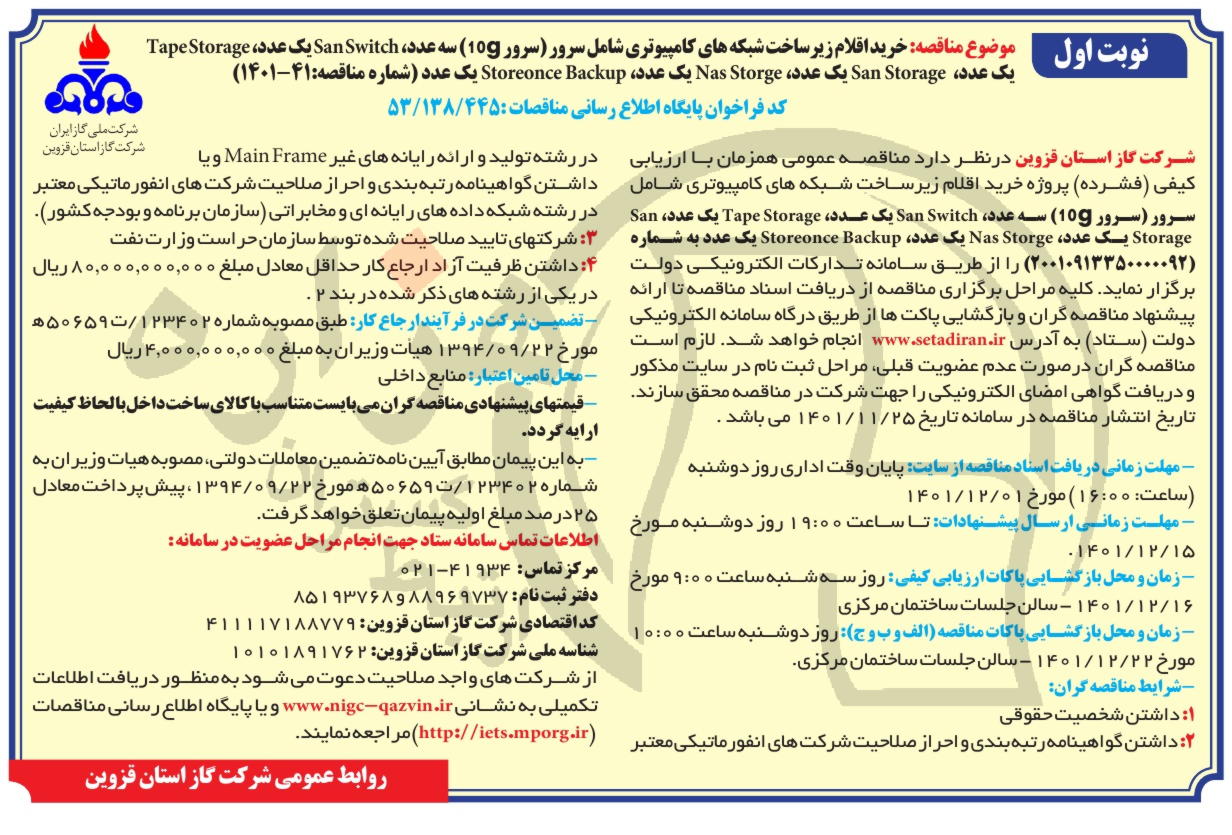 نوبت اول
موضوع مناقصه: خرید اقلام زیرساخت شبکه های کامپیوتری شامل سرور (سرور 10g) سه عدد، San Switch یک عدد، Tape Storage
یک عدد، San Storage یک عدد، Nas Storge یک عدد، Storeonce Backup یک عدد (شماره مناقصه: ۴۱-۱۴۰۱)
کد فراخوان پایگاه اطلاع رسانی مناقصات: ۵۳/۱۳۸/۴۴۵
شرکت ملی گاز ایران
شرکت گاز استان قزوین
شرکت گاز استان قزوین درنظر دارد مناقصه عمومی همزمان با ارزیابی
کیفی (فشرده) پروژه خرید اقلام زیرساخت شبکه های کامپیوتری شامل
سرور (سرور 10g) سه عدد، San Switch یک عدد، Tape Storage یک عدد، San
Storage یک عدد، Nas Storge یک عدد، Storeonce Backup یک عدد به شماره
(۲۰۰۱۰۹۱۳۳۵۰۰۰۰۰۹۲) را از طریق سامانه تدارکات الکترونیکی دولت
برگزار نماید. کلیه مراحل برگزاری مناقصه از دریافت اسناد مناقصه تا ارائه
پیشنهاد مناقصه گران و بازگشایی پاکت ها از طریق درگاه سامانه الکترونیکی
دولت (ستاد) به آدرس www.setadiran.ir انجام خواهد شد. لازم است
مناقصه گران درصورت عدم عضویت قبلی، مراحل ثبت نام در سایت مذکور
و دریافت گواهی امضای الکترونیکی را جهت شرکت در مناقصه محقق سازند.
تاریخ انتشار مناقصه در سامانه تاریخ ۱۴۰۱/۱۱/۲۵ می باشد .
-مهلت زمانی دریافت اسناد مناقصه از سایت: پایان وقت اداری روز دوشنبه
(ساعت: ۱۶:۰۰) مورخ ۱۴۰۱/۱۲/۰۱
-مهلت زمانی ارسال پیشنهادات: تا ساعت ۱۹:۰۰ روز دوشنبه مورخ
۱۴۰۱/۱۲/۱۵.
-زمان و محل بازگشایی پاکات ارزیابی کیفی: روز سه شنبه ساعت ۹:۰۰ مورخ
۱۴۰۱/۱۲/۱۶ -سالن جلسات ساختمان مرکزی
-زمان و محل بازگشایی پاکات مناقصه (الف و ب و ج): روز دوشنبه ساعت ۱۰:۰۰
مورخ ۱۴۰۱/۱۲/۲۲ -سالن جلسات ساختمان مرکزی.
-شرایط مناقصه گران:
۱: داشتن شخصیت حقوقی
۲: داشتن گواهینامه رتبه بندی و احراز صلاحیت شرکت های انفورماتیکی معتبر
در رشته تولید و ارائه رایانه های غیر Main Frame و یا
داشتن گواهینامه رتبه بندی و احراز صلاحیت شرکت های انفورماتیکی معتبر
در رشته شبکه داده های رایانه ای و مخابراتی (سازمان برنامه و بودجه کشور).
۳: شرکتهای تایید صلاحیت شده توسط سازمان حراست وزارت نفت
۴: داشتن ظرفیت آزاد ارجاع کار حداقل معادل مبلغ ۸۰,۰۰۰,۰۰۰,۰۰۰ ریال
در یکی از رشته های ذکر شده در بند ۲ .
-تضمین شرکت در فرآیند ارجاع کار: طبق مصوبه شماره ۱۲۳۴۰۲/ت۵۰۶۵۹ه
مورخ ۱۳۹۴/۰۹/۲۲ هیأت وزیران به مبلغ ۴,۰۰۰,۰۰۰,۰۰۰ ریال
-محل تامین اعتبار: منابع داخلی
-قیمتهای پیشنهادی مناقصه گران می بایست متناسب با کالای ساخت داخل بالحاظ کیفیت
ارایه گردد.
-به این پیمان مطابق آیین نامه تضمین معاملات دولتی، مصوبه هیات وزیران به
شماره ۱۲۳۴۰۲/ت۵۰۶۵۹ه مورخ ۱۳۹۴/۰۹/۲۲، پیش پرداخت معادل
۲۵درصد مبلغ اولیه پیمان تعلق خواهد گرفت.
اطلاعات تماس سامانه ستاد جهت انجام مراحل عضویت در سامانه:
مرکز تماس: ۴۱۹۳۴-۰۲۱
دفتر ثبت نام: ۸۸۹۶۹۷۳۷ و ۸۵۱۹۳۷۶۸
کد اقتصادی شرکت گاز استان قزوین: ۴۱۱۱۱۷۱۸۸۷۷۹
شناسه ملی شرکت گاز استان قزوین: ۱۰۱۰۱۸۹۱۷۶۲
از شرکت های واجد صلاحیت دعوت می شود به منظور دریافت اطلاعات
تکمیلی به نشانی www.nigc-qazvin.ir و یا پایگاه اطلاع رسانی مناقصات
(http://iets.mporg.ir) مراجعه نمایند.
روابط عمومی شرکت گاز استان قزوین